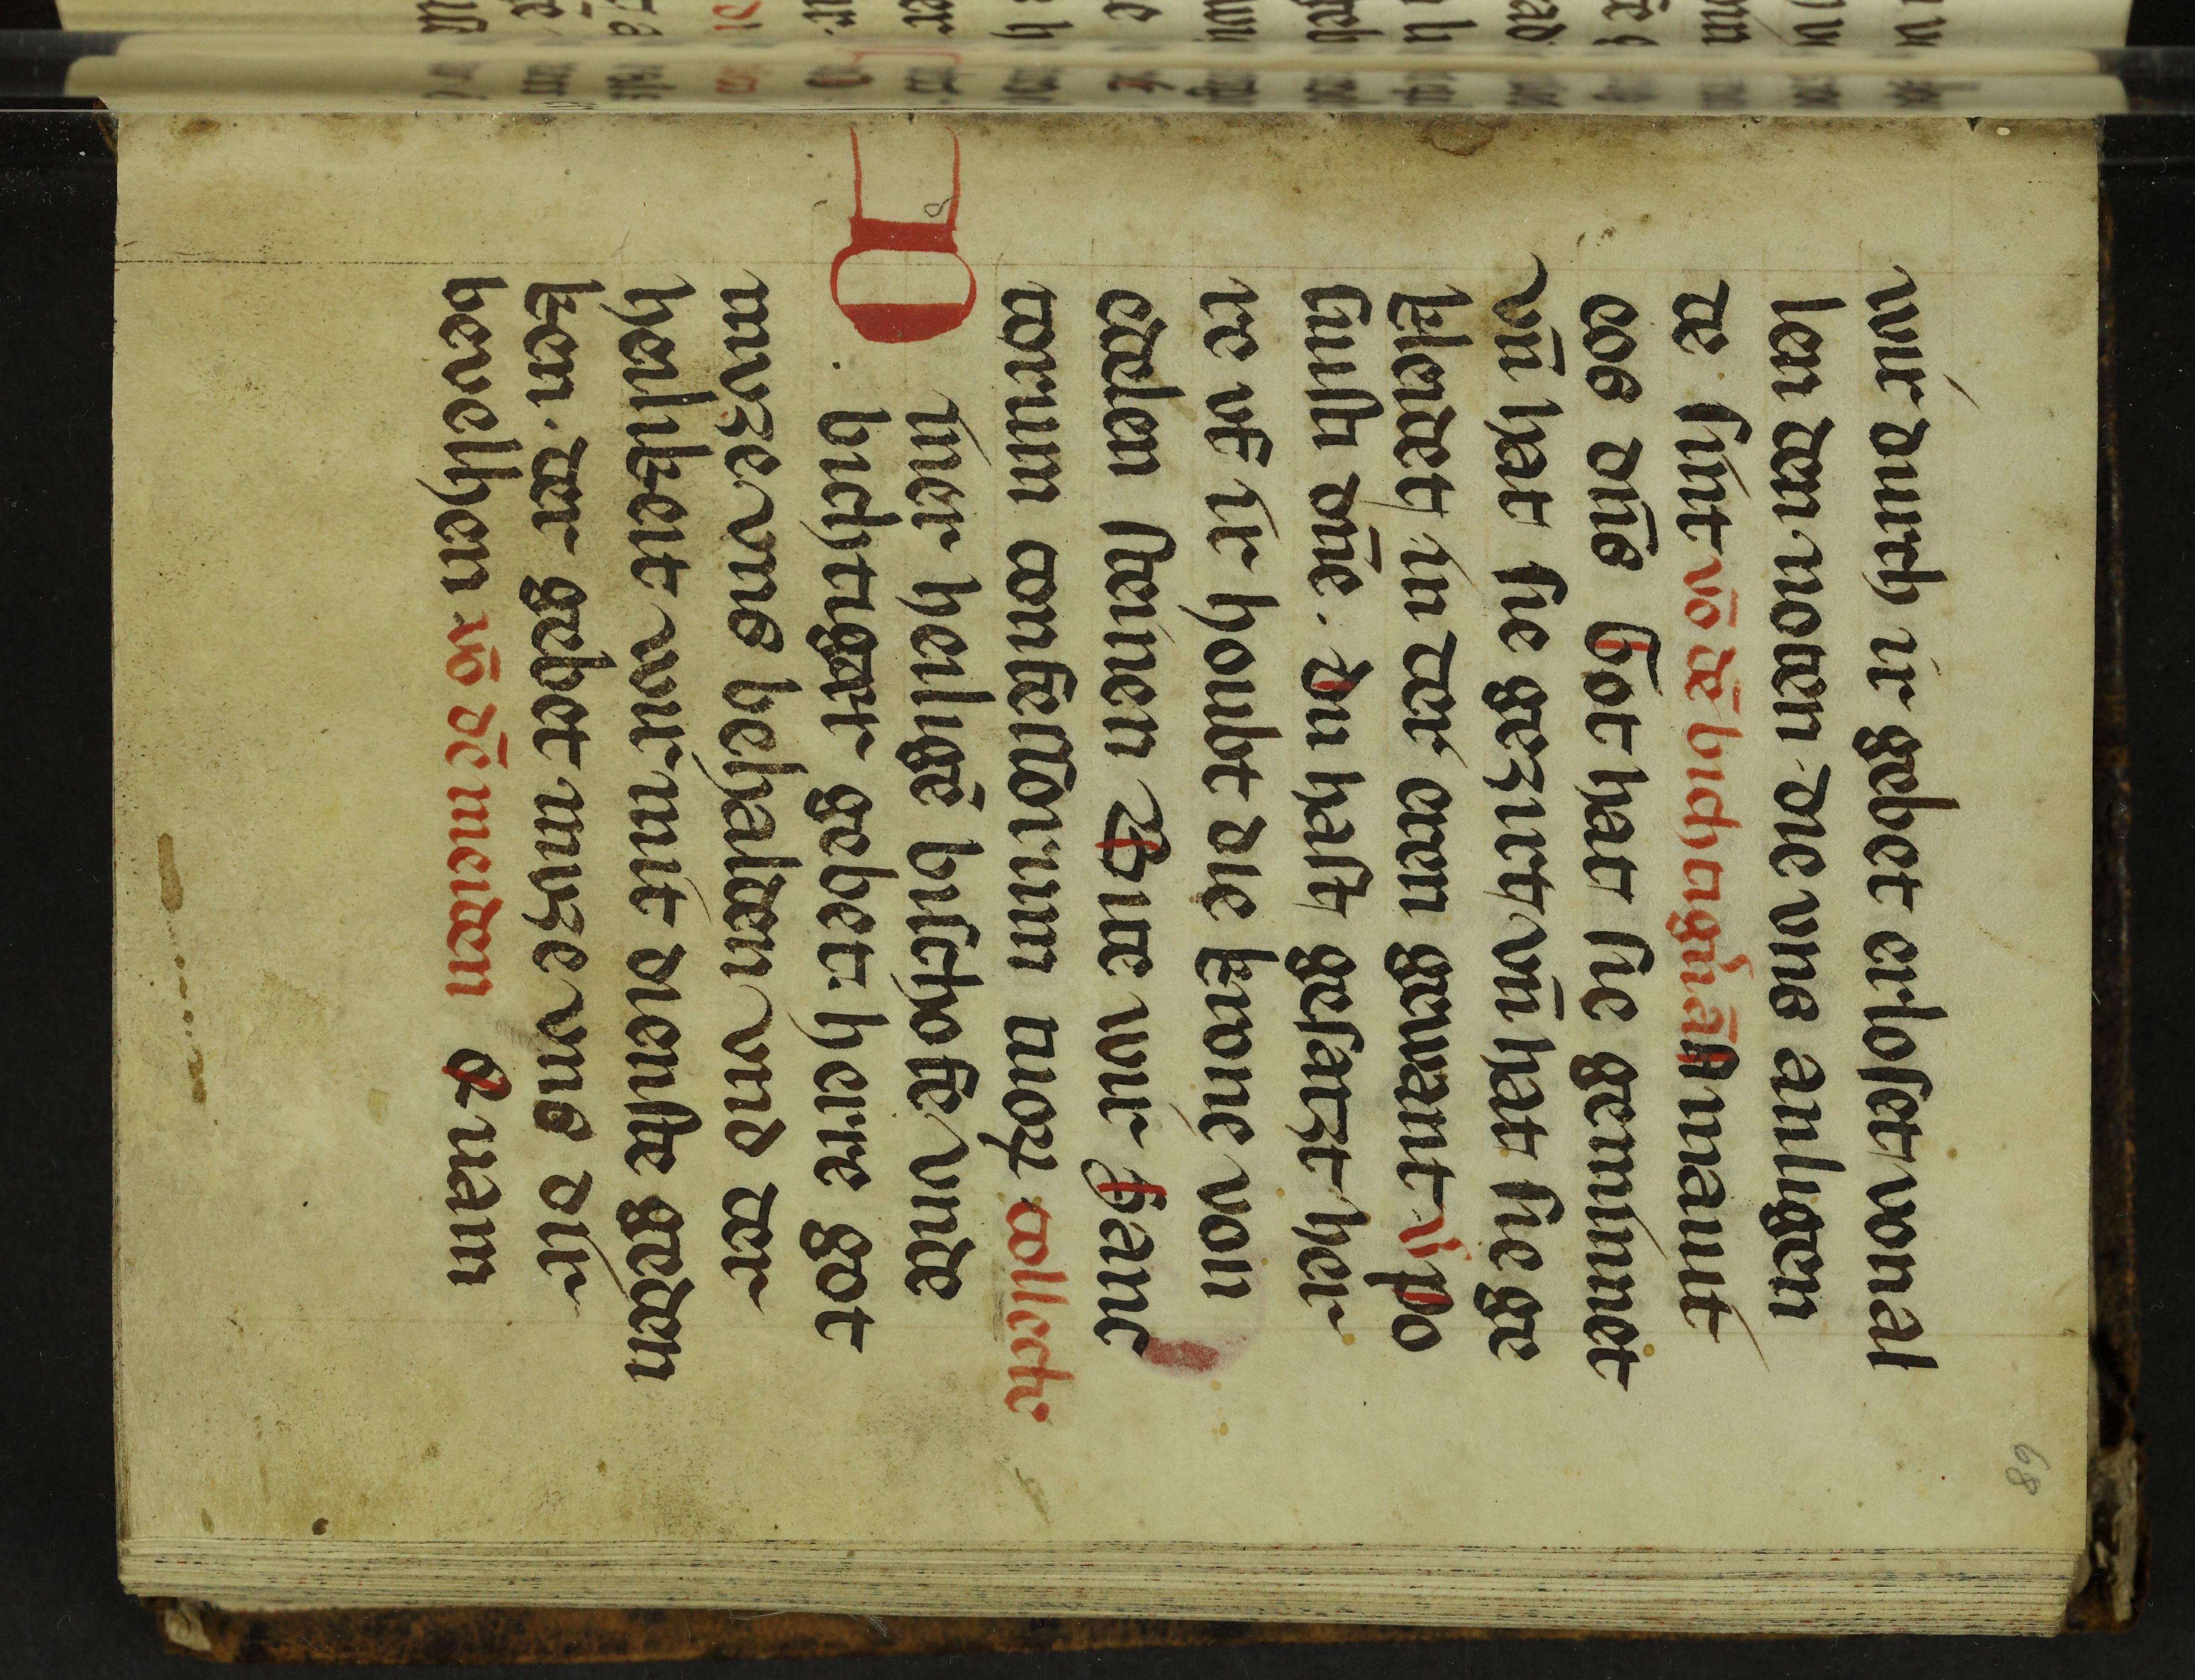 wir durch ir gebet erloset von al
len den noeten die vns anligen
de sint vō dē bichtegnūā Amauit
eos dn̄s Got hatt sie geminnet
vn̄ hatt sie gezirtt vn̄ hatt sie ge
kleidet in der eren gewant V Po
suisti dn̄e. Du hast gesatzt her
re vf ir houbt die krone von
edelen steinen Bitte wir Sanc
torum confessorum tuorum nos collecta
Diner heiligē bischofe vnde
bichtigere gebet. herre got
muze vns behalden vnd der
heilikeit wir mit dienste geden
ken. der gebet muze vns dir
bevelhen vō dē meiden